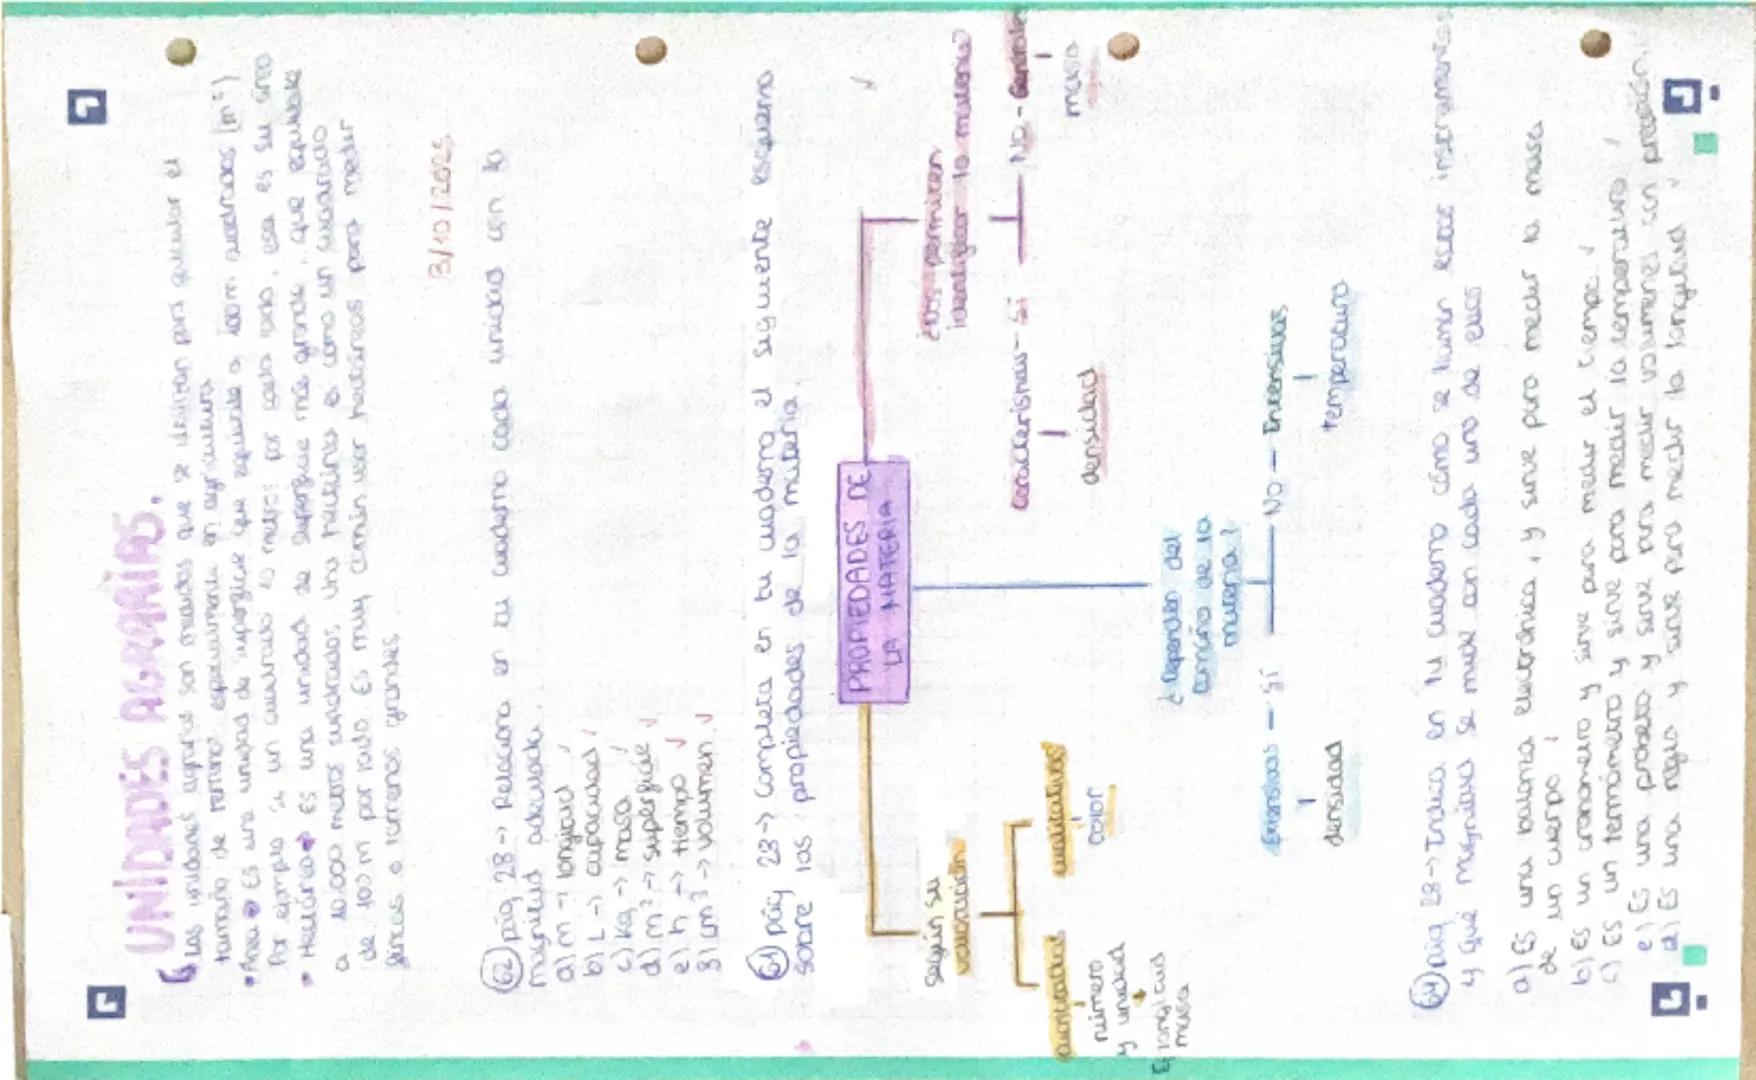 UNIDADES AGRARIAS.
6. Las unidades agrarias son medidas que se utilizan para calcular el
tamaño de terrenos, especialmente en agricultura
• Área → Es una unidad de superficie que equivale a 100 m cuadrados (m²)
Por ejemplo si un cuadrado 10 metros por cada lado, esa es su área
• Hectárea → Es una unidad de superficie más grande, que equivale
a 10.000 metros cuadrados. Una hectárea es como un cuadrado
de 100 m por lado. Es muy común usar hectáreas para medir
fincas o terrenos grandes
3/10/2025
62 pág 28 -> Relaciona en tu cuaderno cada unidad con la
magnitud adecuada.
a) m -> longitud
b) L -> capacidad
c) Kg -> masa
d) m² -> superficie
e) h -> tiempo
g) cm³ -> volumen
61 pág 28 -> Completa en tu cuaderno el siguiente esquema
sobre las propiedades de la materia
PROPIEDADES DE
LA MATERIA
según su
valoración
cuantitativas
número
y unidad
Ej: longitud
masa
cualitativas
color
¿Dependen del
tamaño de la
materia?
Extensivas - Sí
densidad
NO - Intensivas
temperatura
¿Nos permiten
identificar la materia?
Características - Sí
densidad
NO - Generales
masa
64 pág 28 -> Indica en tu cuaderno cómo se llaman estos instrumentos
y qué magnitud se mide con cada uno de ellos
a) Es una balanza electrónica, y sirve para medir la masa
de un cuerpo
b) Es un cronometro y sirve para medir el tiempo
c) Es un termómetro y sirve para medir la temperatura
e) Es una probeta y sirve para medir volúmenes con precisión
d) Es una regla y sirve para medir la longitud